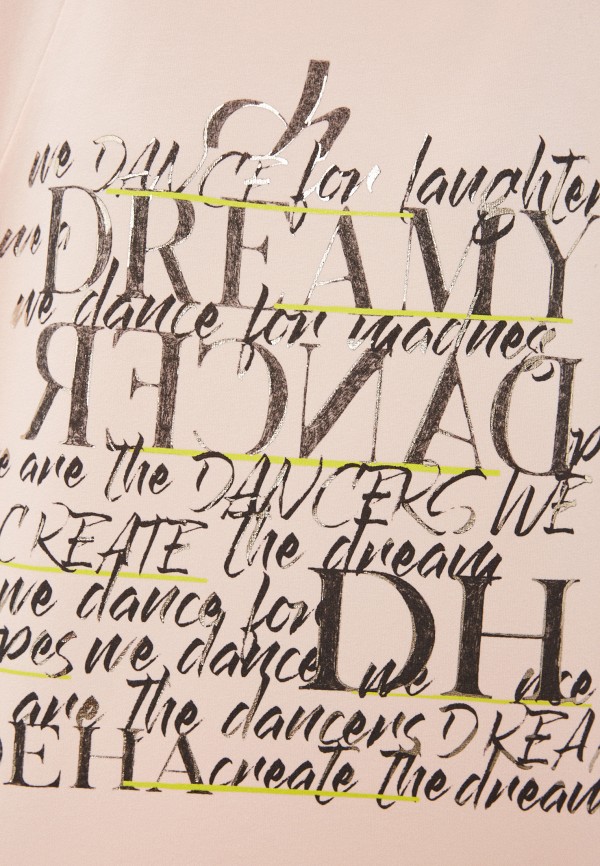 ch
we DANCE for laughter
DREAMY
we dance for madnes
DANCER
e are the DANCERS WE
CREATE the dream
we dance for
DH
pes we dance we nce
are the dancers DREA
DEHA create the dream